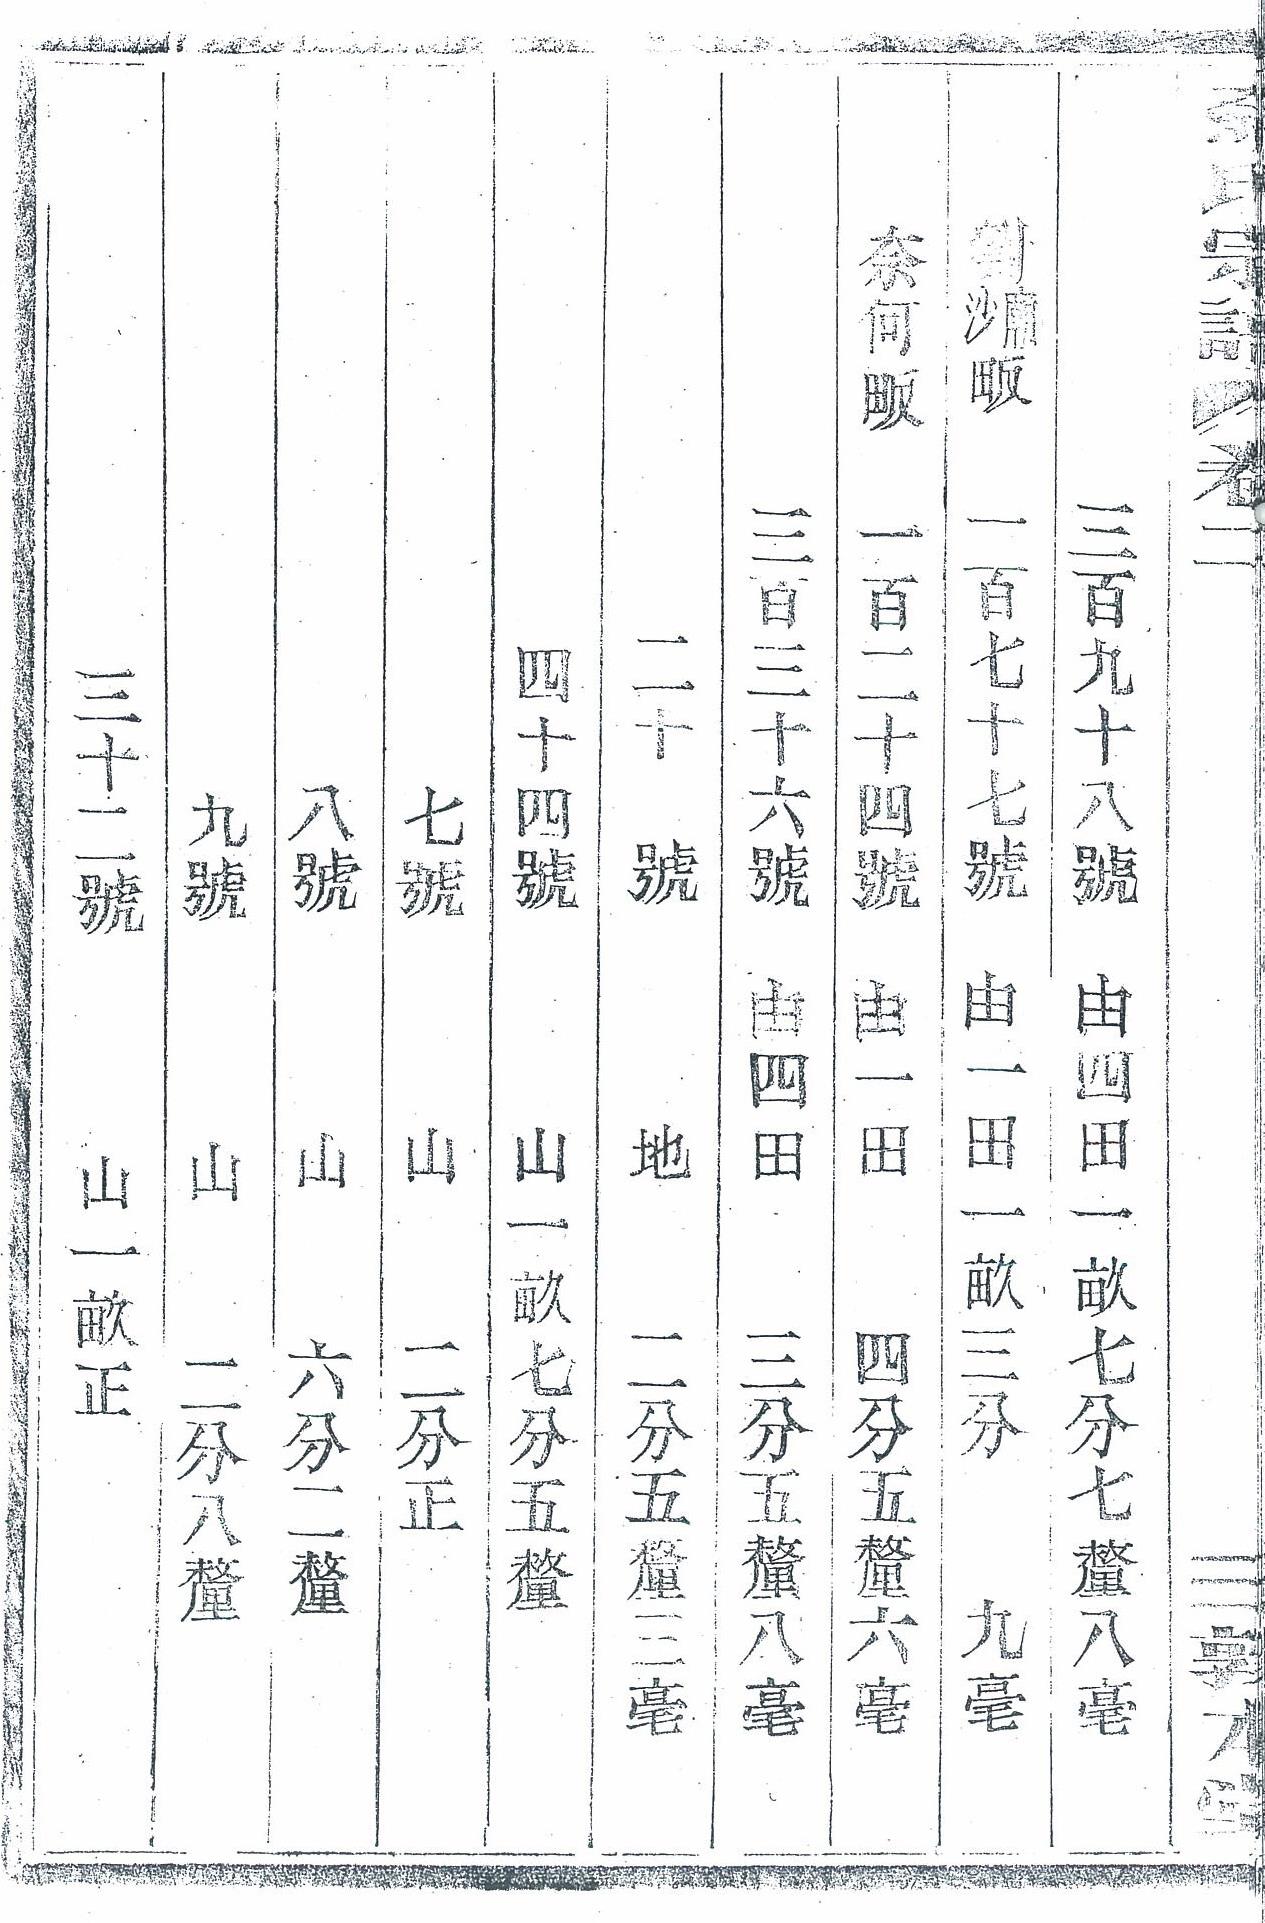 氏宗譜 卷二
三百九十八號 由四田一畝七分七釐八毫
沙畈 一百七十七號 由一田一畝三分 九毫
奈何畈 一百二十四號 由一田 四分五釐六毫
三百三十六號 由四田 三分五釐八毫
二十 號 地 二分五釐三毫
四十四號 山一畝七分五釐
七號 山 二分正
八號 山 六分二釐
九號 山 二分八釐
三十二號 山一畝正